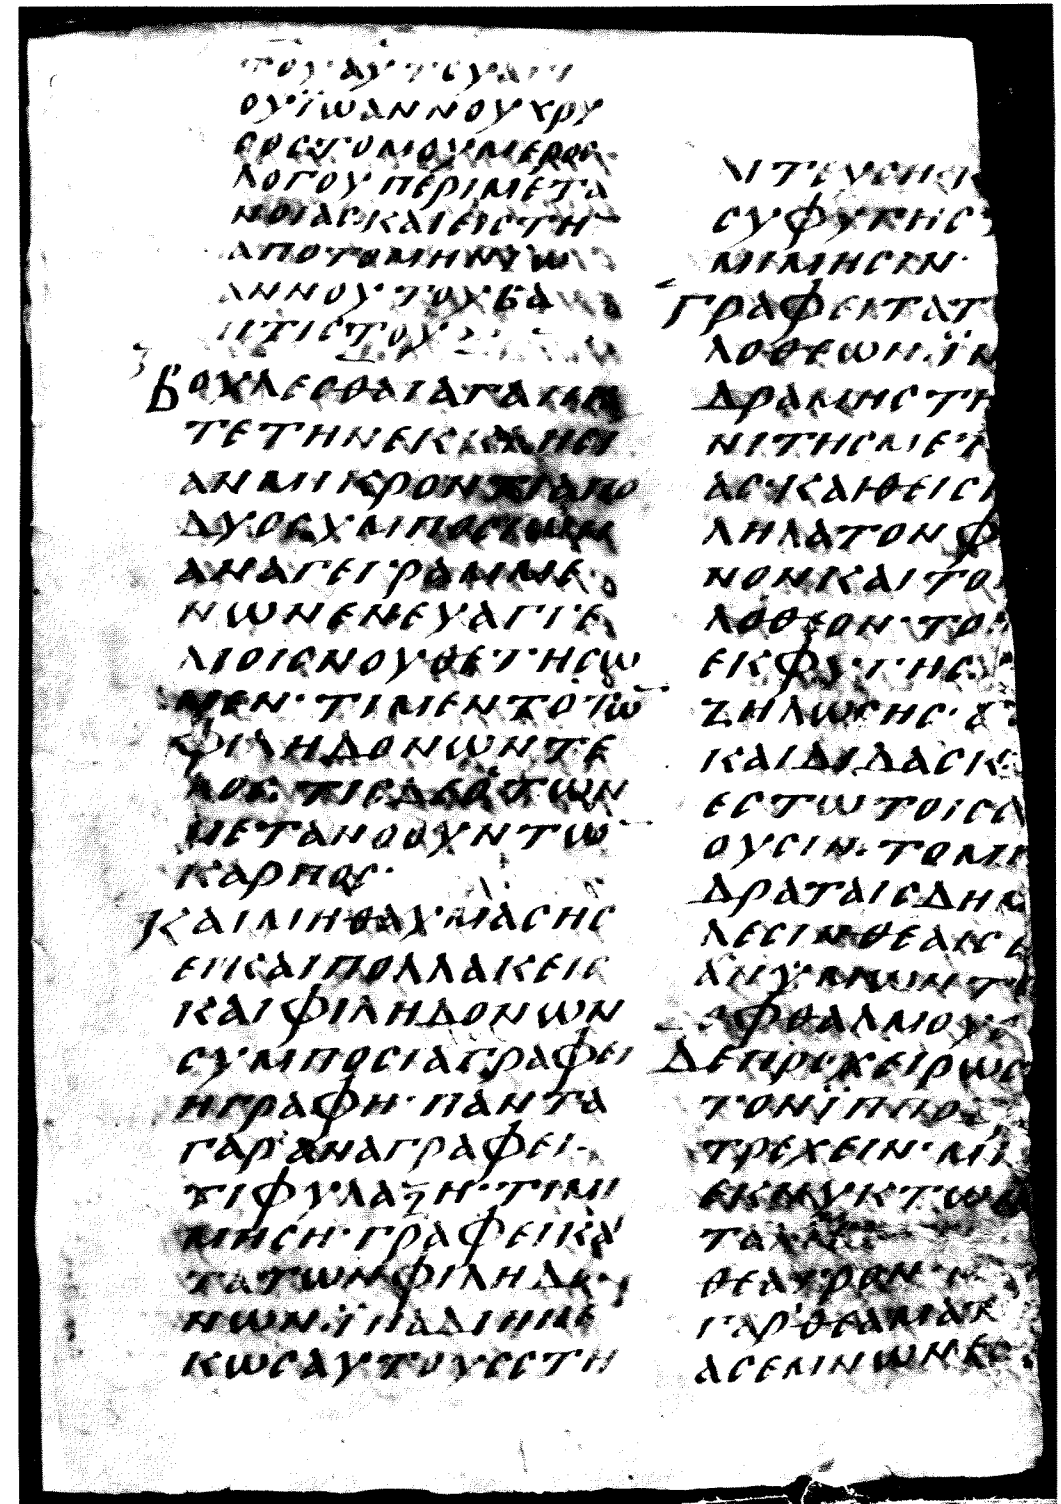 ΤΟΥ ΑΥΤΟΥ ΑΓΙ
ΟΥ ΪΩΑΝΝΟΥ ΧΡΥ
ΣΟΣΤΟΜΟΥ ΜΕΡΟΣ
ΛΟΓΟΥ ΠΕΡΙ ΜΕΤΑ
ΝΟΙΑΣ ΚΑΙ ΕΙΣ ΤΗ̅
ΑΠΟΤΟΜΗΝ ΙΩ
ΑΝΝΟΥ ΤΟΥ ΒΑ
ΠΤΙΣΤΟΥ
ΒΟΥΛΕΣΘΑΙ ΑΓΑΠΗ
ΤΕ ΤΗΝ ΕΚΚΛΗΣΙ
ΑΝ ΜΙΚΡΟΝ ΤΙ ΑΠΟ
ΔΥΟ ΣΥΜΠΟΣΙΩΝ
ΑΝΑΓΕΓΡΑΜΜΕ
ΝΩΝ ΕΝ ΕΥΑΓΓΕ
ΛΙΟΙΣ ΝΟΥΘΕΤΗΣΩ
ΜΕΝ· ΤΙ ΜΕΝ ΤΟ ΤΩ̅
ΦΙΛΗΔΟΝΩΝ ΤΕ
ΛΟΣ ΤΙΣ ΔΕ Ο ΤΩΝ
ΜΕΤΑΝΟΟΥΝΤΩ̅
ΚΑΡΠΟΣ·
ΚΑΙ ΜΗ ΘΑΥΜΑΣΗΣ
ΕΙ ΚΑΙ ΠΟΛΛΑΚΕΙΣ
ΚΑΙ ΦΙΛΗΔΟΝΩΝ
ΣΥΜΠΟΣΙΑ ΓΡΑΦΕΙ
Η ΓΡΑΦΗ· ΠΑΝΤΑ
ΓΑΡ ΑΝΑΓΡΑΦΕΙ·
ΤΙ ΦΥΛΑΞΗ· ΤΙ ΜΙ
ΜΗΣΗ· ΓΡΑΦΕΙ ΚΑ
ΤΑ ΤΩΝ ΦΙΛΗΔΟ
ΝΩΝ· ΪΝΑ ΔΙΗΝΕ
ΚΩΣ ΑΥΤΟΥΣ ΣΤΗ
ΛΙΤΕΥΣΗ Κ
ΣΥ ΦΥΓΗΣ Τ
ΜΙΜΗΣΙΝ·
ΓΡΑΦΕΙ ΤΑ Τ
ΛΟΘΕΩΝ· ΪΝ
ΔΡΑΜΗΣ ΤΗ
ΝΙ ΤΗΣ ΜΕΤ
ΑΣ· ΚΑΙ ΘΕΙΣ
ΛΗΛΑ ΤΟΝ Φ
ΝΟΝ ΚΑΙ ΤΟ
ΛΟΘΕΟΝ· ΤΟ
ΕΚΦΥΓΗΣ
ΖΗΛΩΣΗΣ·
ΚΑΙ ΔΙΔΑΣΚ
ΕΣΤΩ ΤΟΙΣ Α
ΟΥΣΙΝ· ΤΟ ΜΗ
ΔΡΑ ΤΑΙΣ ΔΗΜ
ΛΕΣΙΝ ΘΕΑΙΣ
ΑΝ ΥΜΩΝ Τ
ΟΦΘΑΛΜΟΥΣ
ΔΕ ΠΡΟΧΕΙΡΩΣ
ΤΟΝ ΪΠΠΟ
ΤΡΕΧΕΙΝ· ΜΗ
ΕΚ ΝΥΚΤΩ
ΤΑΛΑ
ΘΕΑΤΡΟΝ·
ΓΑΡ ΘΕΑΜΑ Κ
ΑΣΕΜΝΩΝ ΕΣ